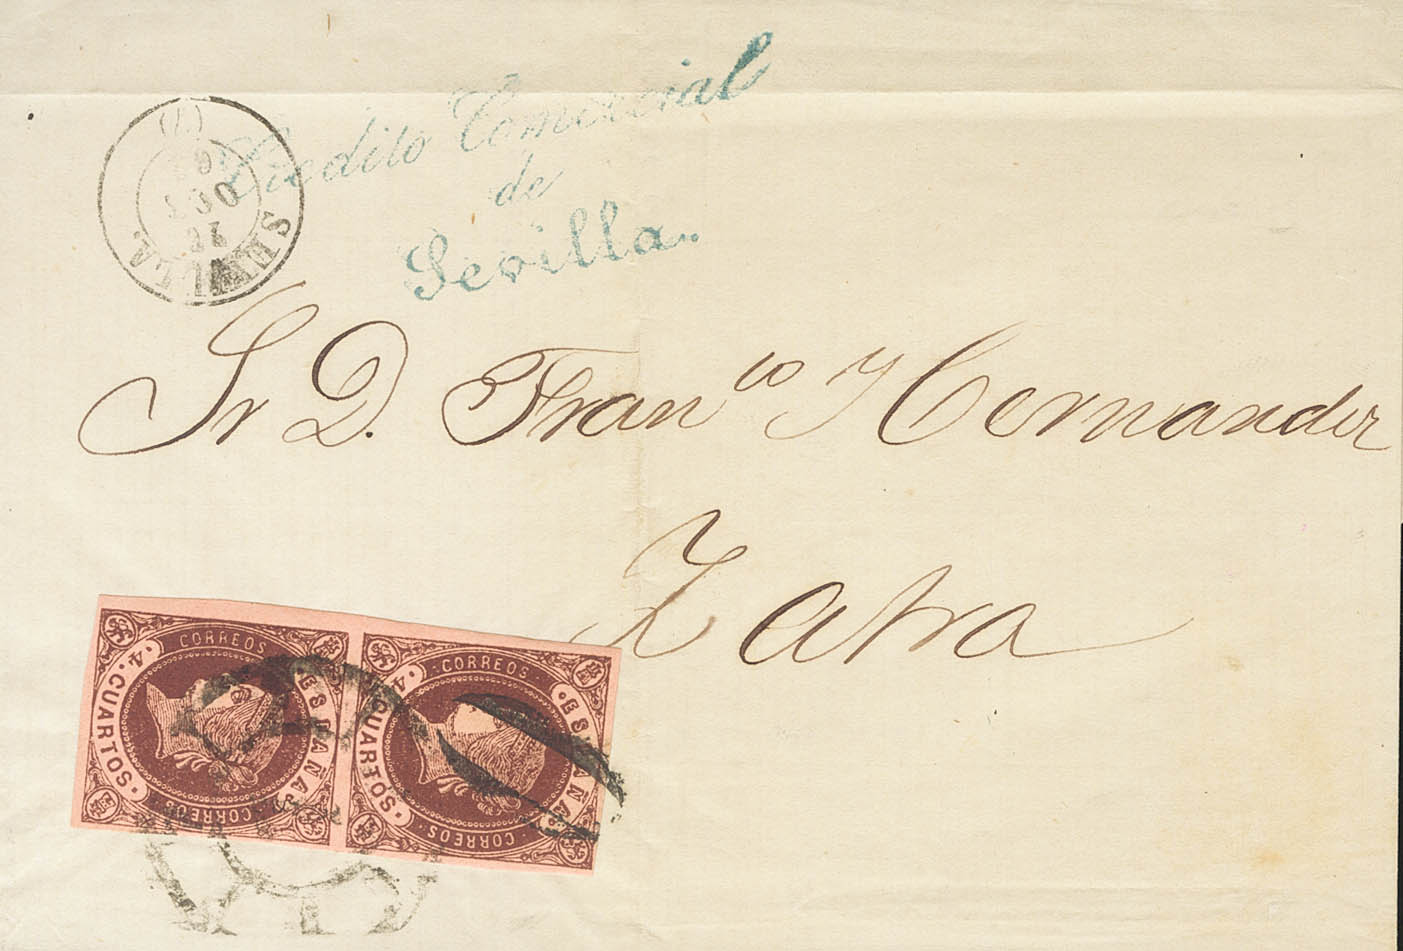 Credito Comercial
de
Sevilla.
SEVILLA
Sr D. Fran^co y Hernandez
Zafra
CORREOS
4 · CUARTOS
ESPAÑA
CORREOS
CORREOS
4 · CUARTOS
ESPAÑA
CORREOS